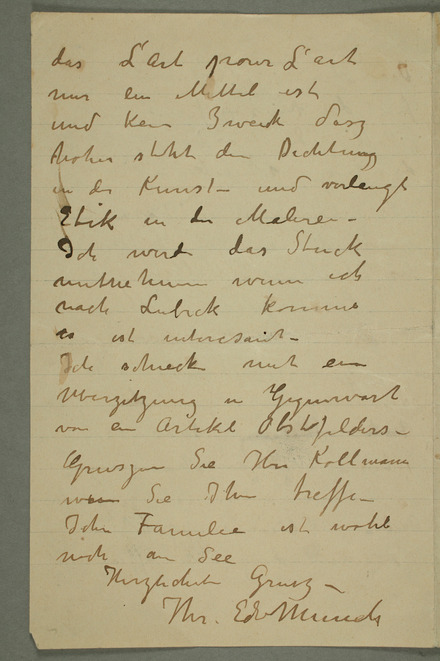 das L'art pour L'art
nur ein Mittel ist
und kein Zweck dasz
hoher steht den Dichtung
in der Kunst – und verlangt
Etik in der Malerei –
Ich werde das Stuck
mitnehmen wenn ich
nach Lubeck komme
es ist interesant –
Ich schicke mit ein
Uberzitzung in Gegenwart
von ein Artikel Obstfelders –
Gruszen Sie Hrn Kollmann
wenn Sie Ihm treffen –
Ihre Familie ist wohl
nich am See
Herzlichen Grusz –
Ihr. Edv Munch